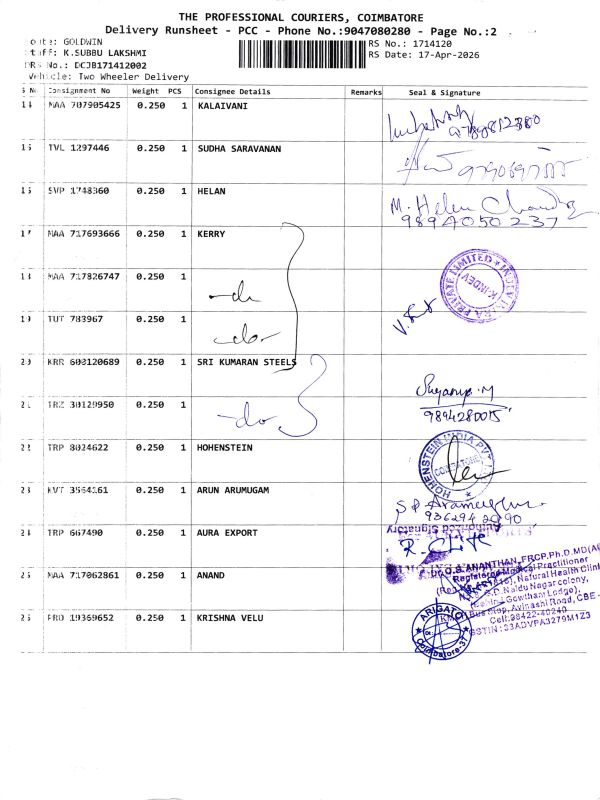 THE PROFESSIONAL COURIERS, COIMBATORE
Delivery Runsheet - PCC - Phone No.:9047080280 - Page No.:2
Route: GOLDWIN
RS No.: 1714120
Staff: K.SUBBU LAKSHMI
RS Date: 17-Apr-2026
DRS No.: DCJB171412002
Vehicle: Two Wheeler Delivery
S No Consignment No Weight PCS Consignee Details Remarks Seal & Signature
14 MAA 707905425 0.250 1 KALAIVANI
15 TVL 1297446 0.250 1 SUDHA SARAVANAN
16 SVP 1748360 0.250 1 HELAN M. Helen
9894050237
17 MAA 717693666 0.250 1 KERRY
18 MAA 717826747 0.250 1 -do PRIVATE LIMITED K-INDEV
19 TUT 783967 0.250 1 -do-
20 KRR 608120689 0.250 1 SRI KUMARAN STEELS
21 TRZ 30129950 0.250 1 -do-
9894280015
22 TRP 8024622 0.250 1 HOHENSTEIN HOHENSTEIN INDIA PVT COIMBATORE
23 KVT 3564161 0.250 1 ARUN ARUMUGAM
9362942090
24 TRP 667490 0.250 1 AURA EXPORT Authorized Signatory
25 MAA 717062861 0.250 1 ANAND Dr.G.B.ANANTHAN,FRCP,Ph.D,MD(A
Registered Medical Practitioner
Natural Health Clini
G.D.Naidu Nagar colony,
(Behind Gowtham Lodge),
KMCH Bus stop, Avinashi Road, CBE -
Cell:98422-40240
GSTIN:33ADVPA3279M1Z3
26 PRO 19369652 0.250 1 KRISHNA VELU ARIGATO Coimbatore-37